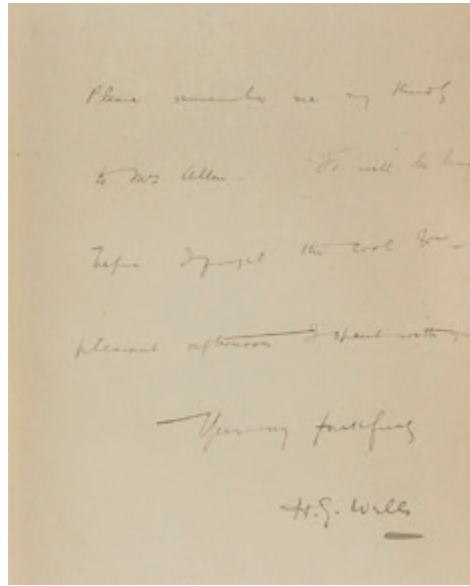 Please remember me very kindly
to Mrs Allen. It will be long
before I forget the cool &
pleasant afternoon I spent with you
Yours very faithfully
H. G. Wells